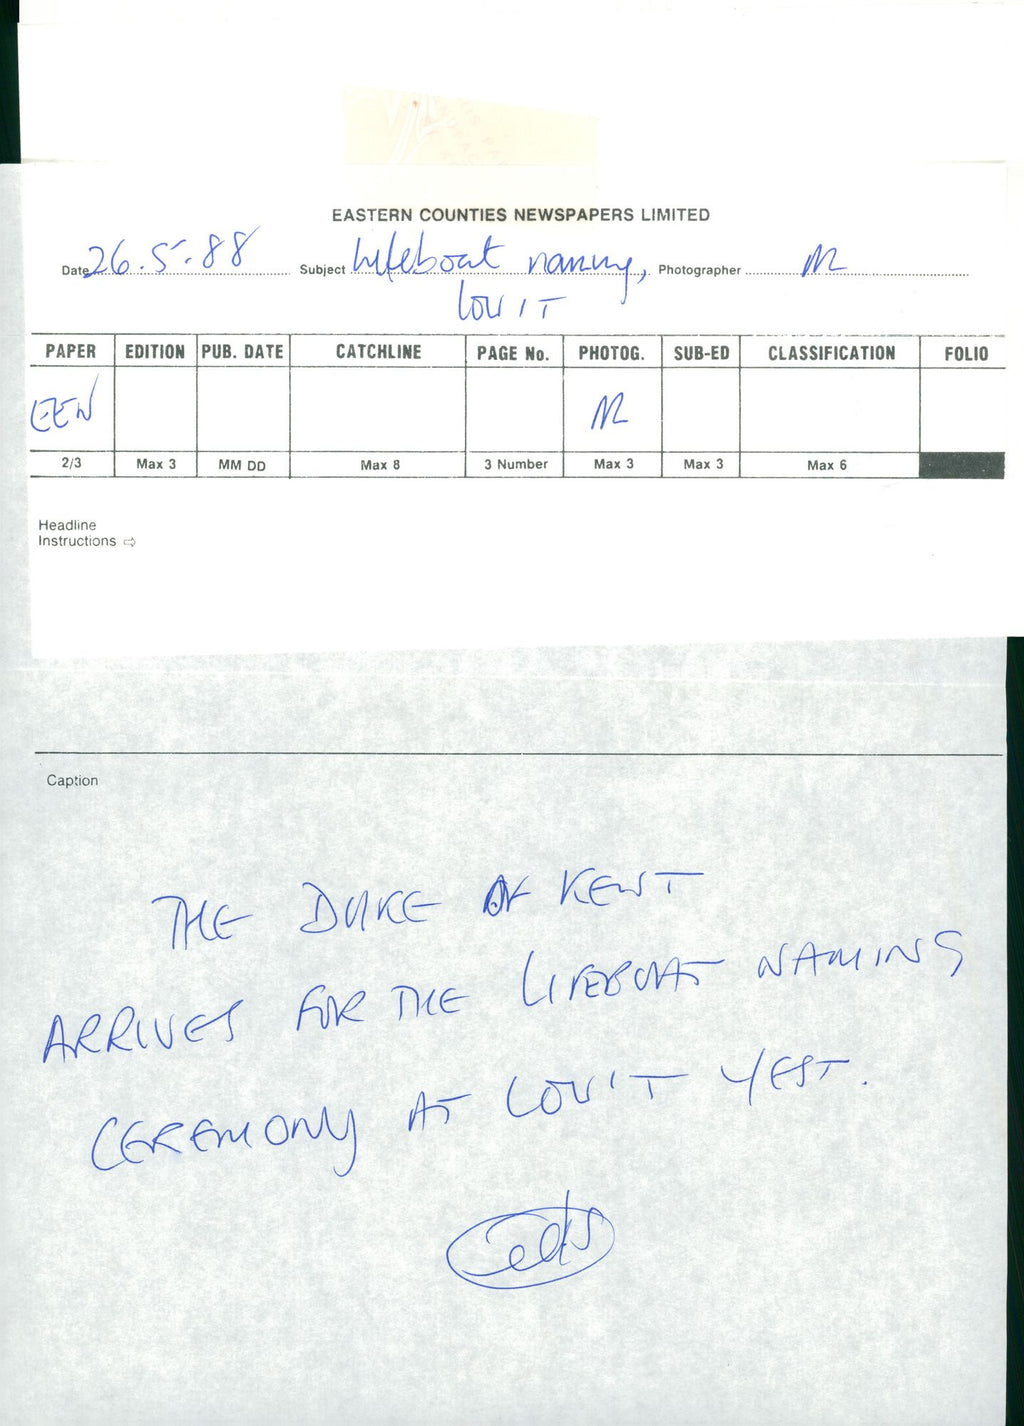 EASTERN COUNTIES NEWSPAPERS LIMITED
Date 26.5.88 Subject Lifeboat naming, Photographer
LOW'T
PAPER EDITION PUB. DATE CATCHLINE PAGE No. PHOTOG. SUB-ED CLASSIFICATION FOLIO
EEN
2/3 Max 3 MM DD Max 8 3 Number Max 3 Max 3 Max 6
Headline
Instructions ⇨
Caption
THE DUKE OF KENT
ARRIVES FOR THE LIFEBOAT NAMING
CEREMONY AT LOW'T YEST.